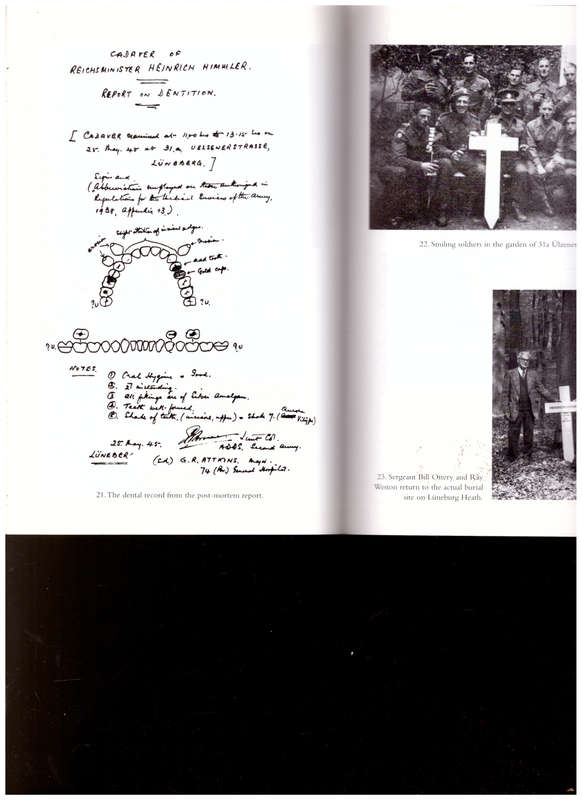 CADAVER OF
REICHSMINISTER HEINRICH HIMMLER.
REPORT ON DENTITION.
[ CADAVER examined at 1100 hrs to 13.15 hrs on
25. May. 45 at 31.a UELSENERSTRASSE,
LÜNEBERG. ]
Signs and
(Abbreviations employed are those authorised in
Regulations for the Medical Services of the Army,
1938, Appendix 13).
Slight attrition of incisal edges.
Gold cap.
?U.
?U.
?U.
?U.
NOTES.
① Oral Hygiene = Good.
③ All fillings are of Silver Amalgam.
④ Teeth well formed.
⑤ Shade of teeth, (incisors, upper) = Shade 7. (
25. May. 45.
Lieut Col.
A.D.D.S. Second Army.
LÜNEBER
(Sd) G.R. ATTKINS. Major.
74 (Br) General Hospital.
21. The dental record from the post-mortem report.
22. Smiling soldiers in the garden of 31a Ülzener
23. Sergeant Bill Ottery and Ray
Weston return to the actual burial
site on Lüneburg Heath.